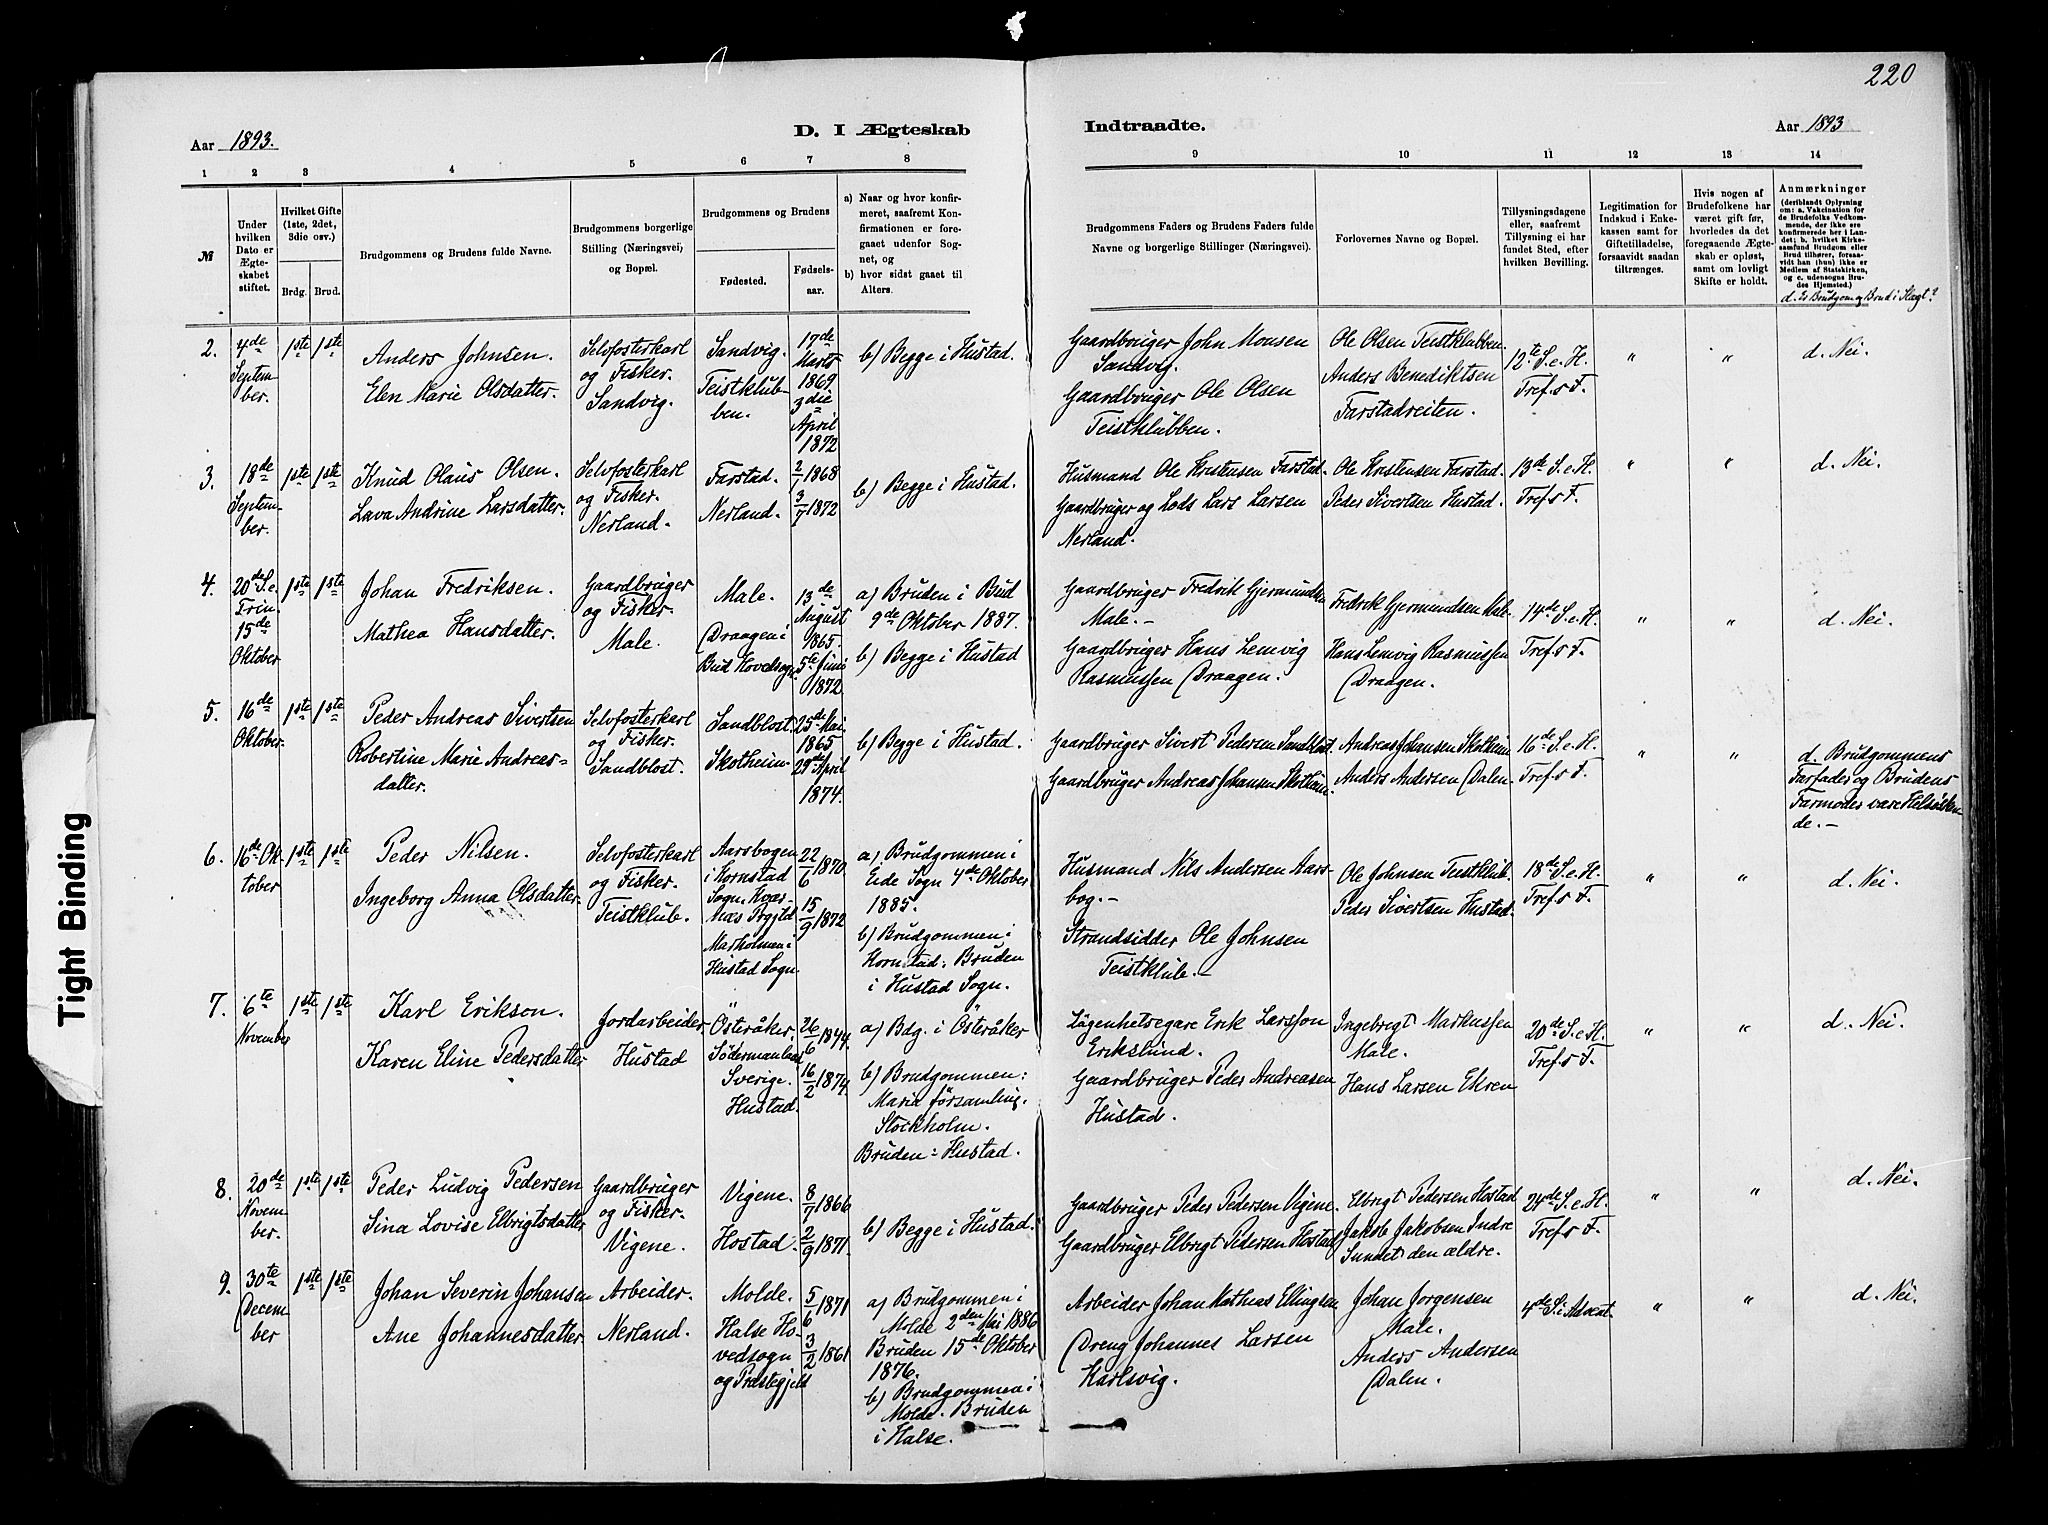 220
Aar 1893.
D. I Ægteskab
Indtraadte.
Aar 1893
1 2 3 4 5 6 7 8 9 10 11 12 13 14
№
Under
hvilken
Dato er
Ægte-
skabet
stiftet.
Hvilket Gifte
(1ste, 2det,
3die osv.)
Brdg.
Brud.
Brudgommens og Brudens fulde Navne.
Brudgommens borgerlige
Stilling (Næringsvei)
og Bopæl.
Brudgommens og Brudens
Fødested.
Fødsels-
aar.
a) Naar og hvor konfir-
meret, saafremt Kon-
firmationen er fore-
gaaet udenfor Sog-
net, og
b) hvor sidst gaaet til
Alters.
Brudgommens Faders og Brudens Faders fulde
Navne og borgerlige Stillinger (Næringsvei).
Forlovernes Navne og Bopæl.
Tillysningsdagene
eller, saafremt
Tillysning ei har
fundet Sted, efter
hvilken Bevilling.
Legitimation for
Indskud i Enke-
kassen samt for
Giftetilladelse,
forsaavidt saadan
tiltrænges.
Hvis nogen af
Brudefolkene har
været gift før,
hvorledes da det
foregaaende Ægte-
skab er opløst,
samt om lovligt
Skifte er holdt.
Anmærkninger
(deriblandt Oplysning
om: a. Vakcination for
de Brudefolks Vedkom-
mende, der ikke ere
konfirmerede her i Lan-
det; b. hvilket Kirke-
samfund Brudgom eller
Brud tilhører, forsaa-
vidt han (hun) ikke er
Medlem af Statskirken,
og c. udensogns Bru-
des Hjemsted.)
d. Er Brudgom og Brud i Slægt?
2.
4de
Septem-
ber.
1ste 1ste
Anders Johnsen.
Elen Marie Olsdatter.
Selvfosterkarl
og Fisker.
Sandvig.
Sandvig.
Teistklub-
ben.
17de
Marts
1869
3die
April
1872
b) Begge i Hustad.
Gaardbruger John Monsen
Sandvig.
Gaardbruger Ole Olsen
Teistklubben.
Ole Olsen Teistklubben.
Anders Benediktsen
Farstadreiten.
12te S. e. H.
Tref. s F.
" "
d. Nei.
3.
18de
Septem-
ber.
1ste 1ste
Knud Olaus Olsen.
Lava Andrine Larsdatter.
Selvfosterkarl
og Fisker.
Nerland.
Farstad.
Nerland.
2/1 1868
3/7 1872
b) Begge i Hustad.
Husmand Ole Kristensen Farstad.
Gaardbruger og Lods Lars Larsen
Nerland.
Ole Kristensen Farstad.
Peder Sivertsen Hustad.
13de S. e. H.
Tref. s F.
" "
d. Nei.
4.
20de S. e.
Trin.
15de
Oktober
1ste 1ste
Johan Fredriksen.
Mathea Hansdatter.
Gaardbruger
og Fisker.
Male.
Male.
Draagen i
Bud Hovedsogn
13de
August
1865.
5te Juni
1872.
a) Bruden i Bud
9de Oktober 1887.
b) Begge i Hustad
Gaardbruger Fredrik Gjermundsen
Male.-
Gaardbruger Hans Lemvig
Rasmussen Draagen.
Fredrik Gjermundsen Male
Hans Lemvig Rasmussen
Draagen.
14de S. e. H.
Tref. s F.
" "
d. Nei.
5.
16de
Oktober.
1ste 1ste
Peder Andreas Sivertsen
Robertine Marie Andreas-
datter.
Selvfosterkarl
og Fisker.
Sandblost.
Sandblost.
Skotheim.
25de Mai
1865
29de April
1874.
b) Begge i Hustad.
Gaardbruger Sivert Pedersen Sandblost.
Gaardbruger Andreas Johansen Skotheim.
Andreas Johansen Skotheim
Anders Andersen Dalen.
16de S. e. H.
Tref. s F.
" "
d. Brudgommens
Farfader og Brudens
Farmoder vare Helsøsken-
de.-
6.
16de Ok-
tober
1ste 1ste
Peder Nilsen.
Ingeborg Anna Olsdatter.
Selvfosterkarl
og Fisker.
Teistklub.
Aarsbogen
i Kornstad
Sogn, Kvær-
næs Prgjld
Marholmen i
Hustad Sogn.
22/6 1870.
15/9 1872
a) Brudgommen i
Eide Sogn 4de Oktober
1885.
b) Brudgommen i
Kornstad: Bruden
i Hustad Sogn.
Husmand Nils Andersen Aars-
bog.-
Strandsidder Ole Johnsen
Teistklub.-
Ole Johnsen Teistklub.
Peder Sivertsen Hustad.
18de S. e. H.
Tref. s F.
" "
d. Nei.
7.
6te
November
1ste 1ste
Karl Erikson.
Karen Eline Pedersdatter
Jordarbeider
Hustad
Österåker
Södermanland
Sverige.
Hustad.
26/6 1874.
16/2 1874.
a) Bdg. i Österåker
b) Brudgommen:
Maria församling.
Stockholm.
Bruden: Hustad.
Lägenhetsegare Erik Larsson
Erikslund.
Gaardbruger Peder Andreasen
Hustad.
Ingebrigt Markussen
Male.
Hans Larsen Ekren
20de S. e. H.
Tref. s F.
" "
d. Nei.
8.
20de
Novem-
ber.
1ste 1ste
Peder Ludvig Pedersen
Sina Lovise Elbrigtsdatter
Gaardbruger
og Fisker.
Vigene.
Vigene.
Hostad.
8/7 1866
2/9 1871.
b) Begge i Hustad.
Gaardbruger Peder Pedersen Vigene.
Gaardbruger Elbrigt Pedersen Hostad
Elbrigt Pedersen Hostad
Jakob Jakobsen Indre
Sundet den ældre.
24de S. e. H.
Tref. s F.
" "
d. Nei.
9.
30te
Decem-
ber
1ste 1ste
Johan Severin Johansen
Ane Johannesdatter
Arbeider.
Nerland.
Molde.
Halse Ho-
vedsogn
og Præstegjeld
5/6 1871
3/2 1861
a) Brudgommen i
Molde 2den Mai 1886
Bruden 15de Oktober
1876.
b) Brudgommen i
Molde. Bruden
i Halse.
Arbeider Johan Mathias Ellingsen
Dreng Johannes Larsen
Karlsvig.
Johan Jorgensen
Male.
Anders Andersen
Dalen.
4de S. i Advent
" "
d. Nei.
Tight Binding